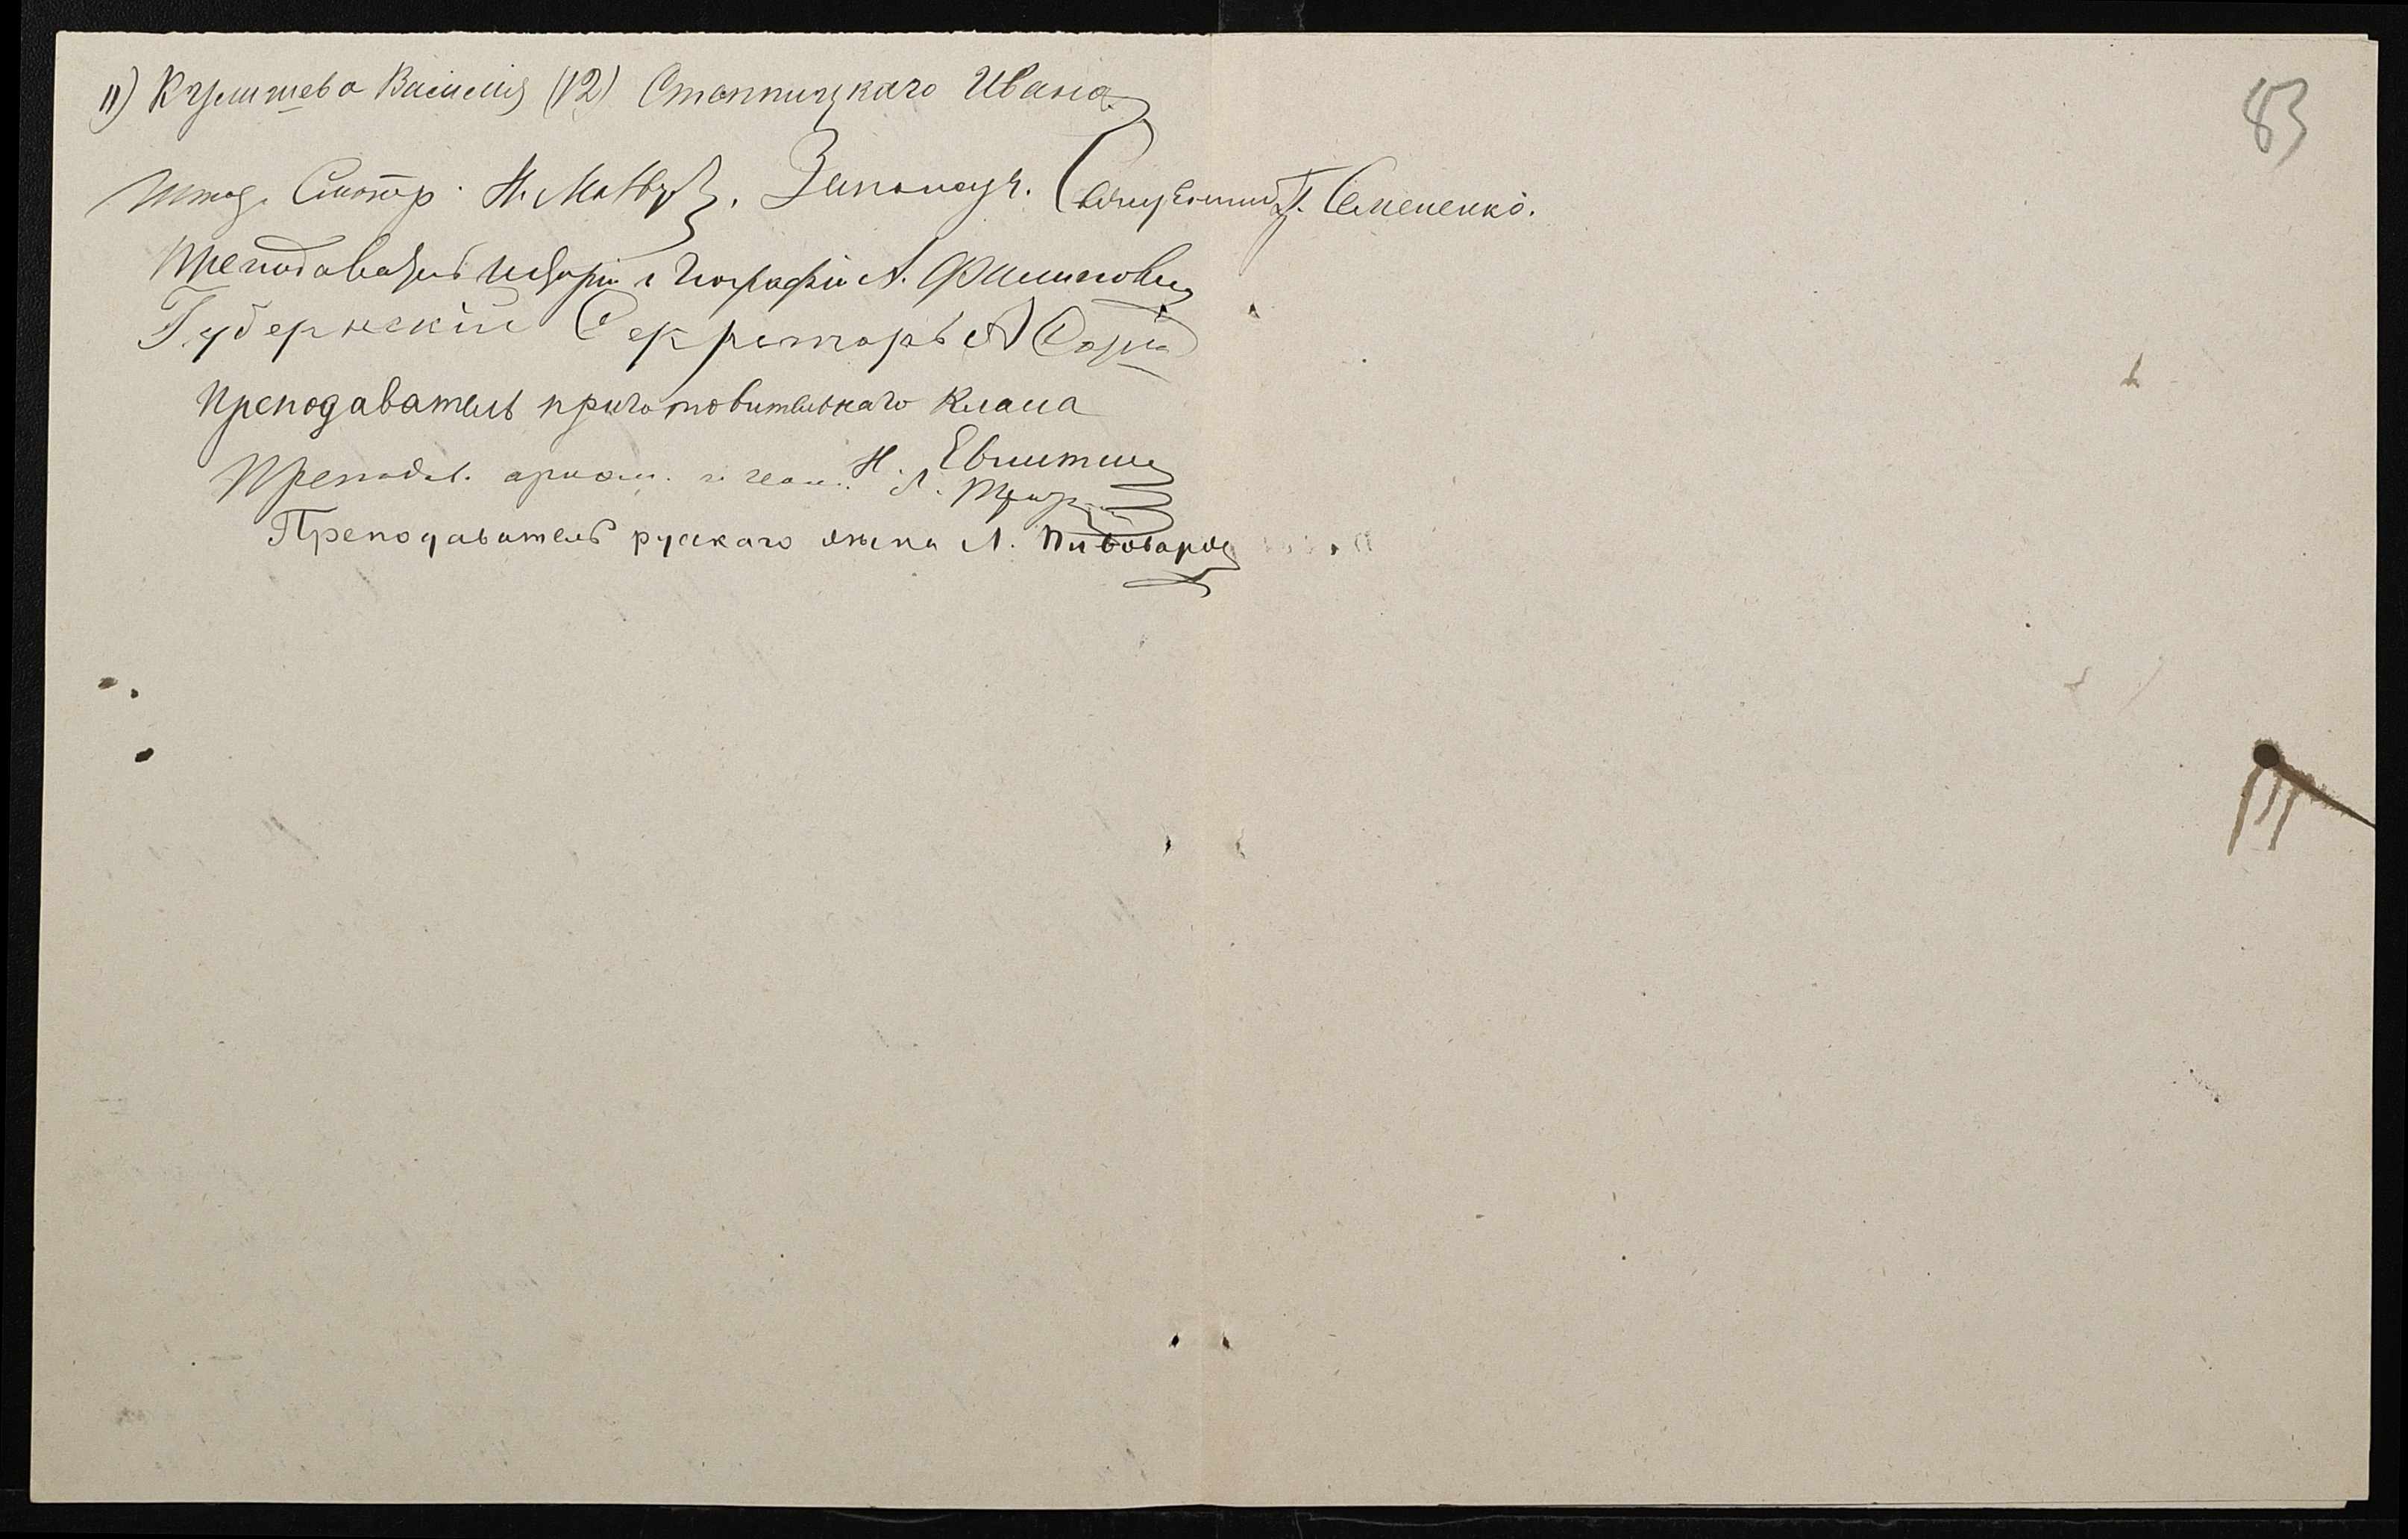 11) Кулишева Василія (12) Стопницкаго Ивана
83
Штат. Смотр. Н. Законоуч. Священник П. Семененко.
Преподаватель исторіи и Географіи А. Филипович
Губернскій Секретарь А
Преподаватель приготовительнаго класса
Преподав. арием. и геом. Н. Л.
Преподаватель рускаго языка Л. Пивоваров